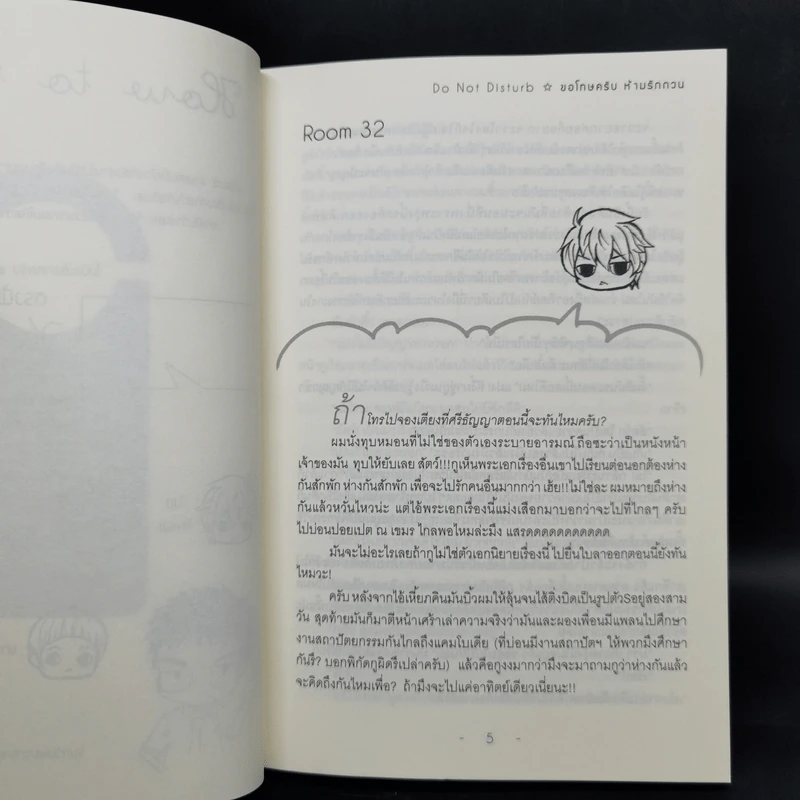 How to
Do Not Disturb ☆ ขอโทษครับ ห้ามรักกวน
Room 32
ถ้าโทรไปจองเตียงที่ศรีธัญญาตอนนี้จะทันไหมครับ?
ผมนั่งทุบหมอนที่ไม่ใช่ของตัวเองระบายอารมณ์ ถือซะว่าเป็นหนังหน้า
เจ้าของมัน ทุบให้ยับเลย สัตว์!!!กูเห็นพระเอกเรื่องอื่นเขาไปเรียนต่อนอกต้องห่าง
กันสักพัก ห่างกันสักพัก เพื่อจะไปรักคนอื่นมากกว่า เฮ้ย!!ไม่ใช่ละ ผมหมายถึงห่าง
กันแล้วหวั่นไหวน่ะ แต่ไอ้พระเอกเรื่องนี้แม่งเสือกมาบอกว่าจะไปที่ไกลๆ ครับ
ไปบ่อนปอยเปต ณ เขมร ไกลพอไหมล่ะมึง แสรดดดดดดดดดดด
มันจะไม่อะไรเลยถ้ากูไม่ใช่ตัวเอกนิยายเรื่องนี้ ไปยื่นใบลาออกตอนนี้ยังทัน
ไหมวะ!
ครับ หลังจากไอ้เหี้ยภคินมันบิ้วผมให้ลุ้นจนไส้ติ่งบิดเป็นรูปตัวSอยู่สองสาม
วัน สุดท้ายมันก็มาตีหน้าเศร้าเล่าความจริงว่ามันและผองเพื่อนมีแพลนไปศึกษา
งานสถาปัตยกรรมกันไกลถึงแคมโบเดีย (ที่บ่อนมีงานสถาปัตฯ ให้พวกมึงศึกษา
กันรึ? บอกพิกัดกูผิดรึเปล่าครับ) แล้วคือกูงงมากว่ามึงจะมาถามกูว่าห่างกันแล้ว
จะคิดถึงกันไหมเพื่อ? ถ้ามึงจะไปแค่อาทิตย์เดียวเนี่ยนะ!!
- 5 -